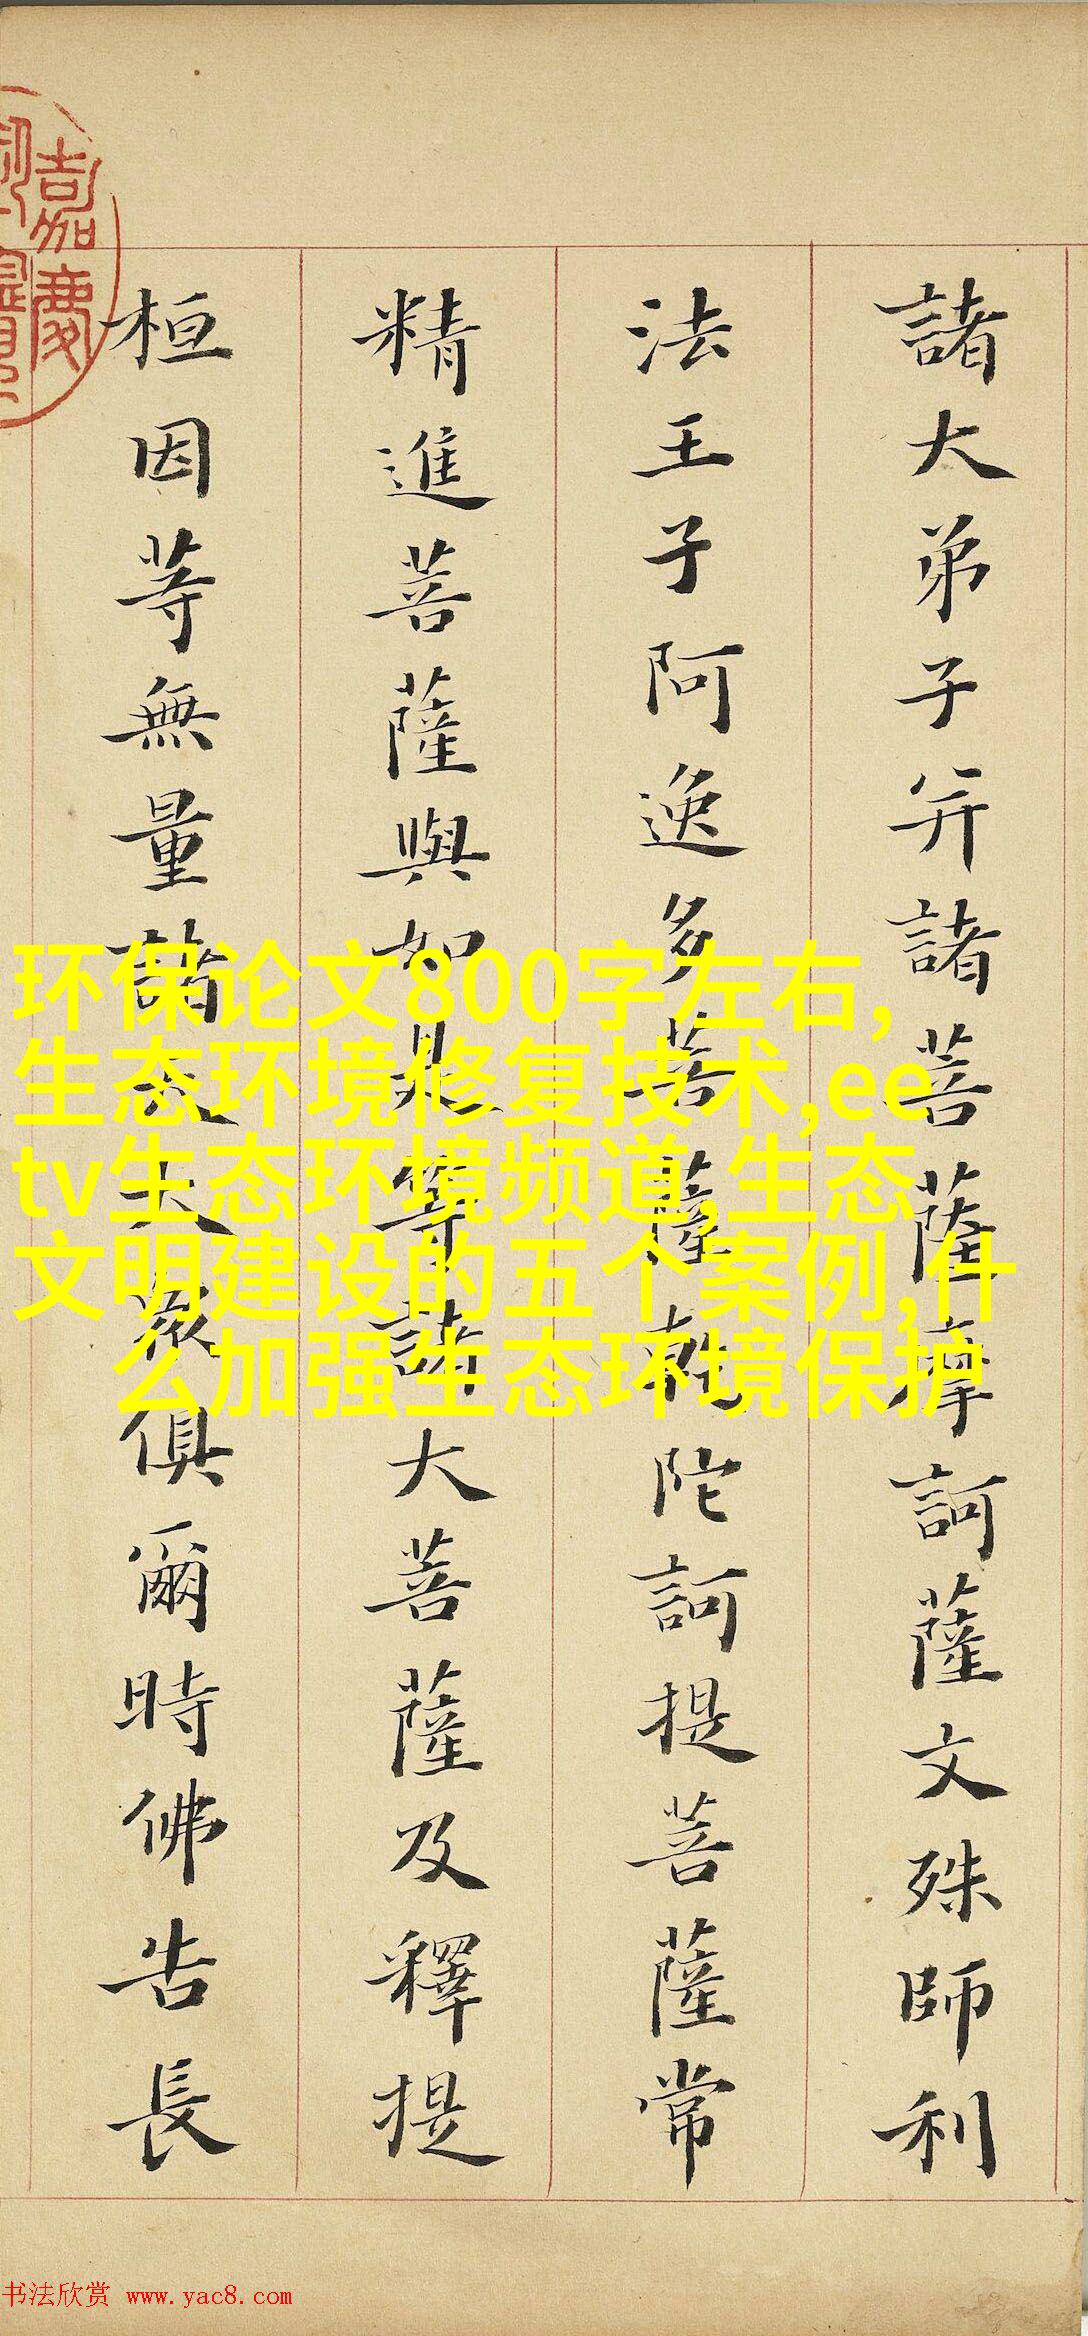 諸大弟子并諸菩薩摩訶薩文殊師利
法王子阿逸多菩薩乾陀訶提菩薩常
精進菩薩與如是等諸大菩薩及釋提
桓因等無量諸天大眾俱爾時佛告長
嘉慶
环保论文800字左右,
生态环境修复技术,ee
tv生态环境频道,生态
文明建设的五个案例,什
么加强生态环境保护
书法欣赏 www.yac8.com